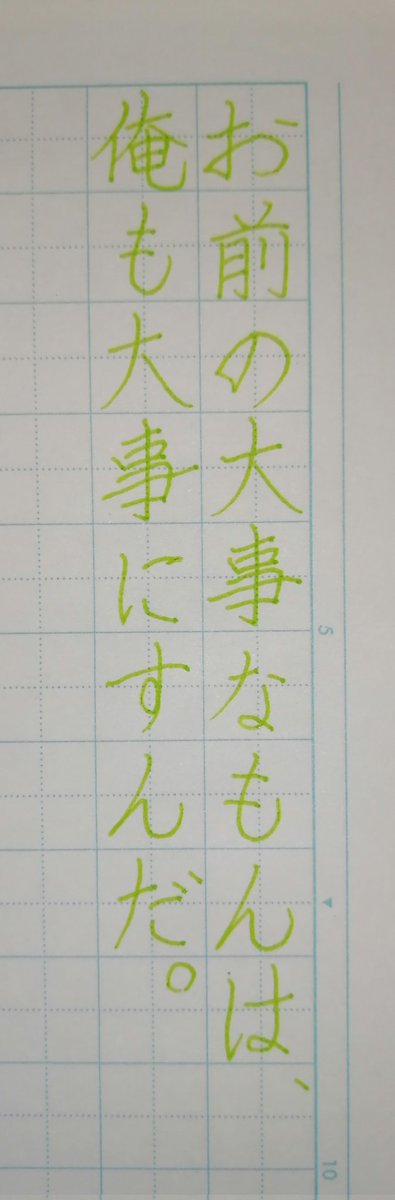 お前の大事なもんは、
俺も大事にすんだ。
5
10